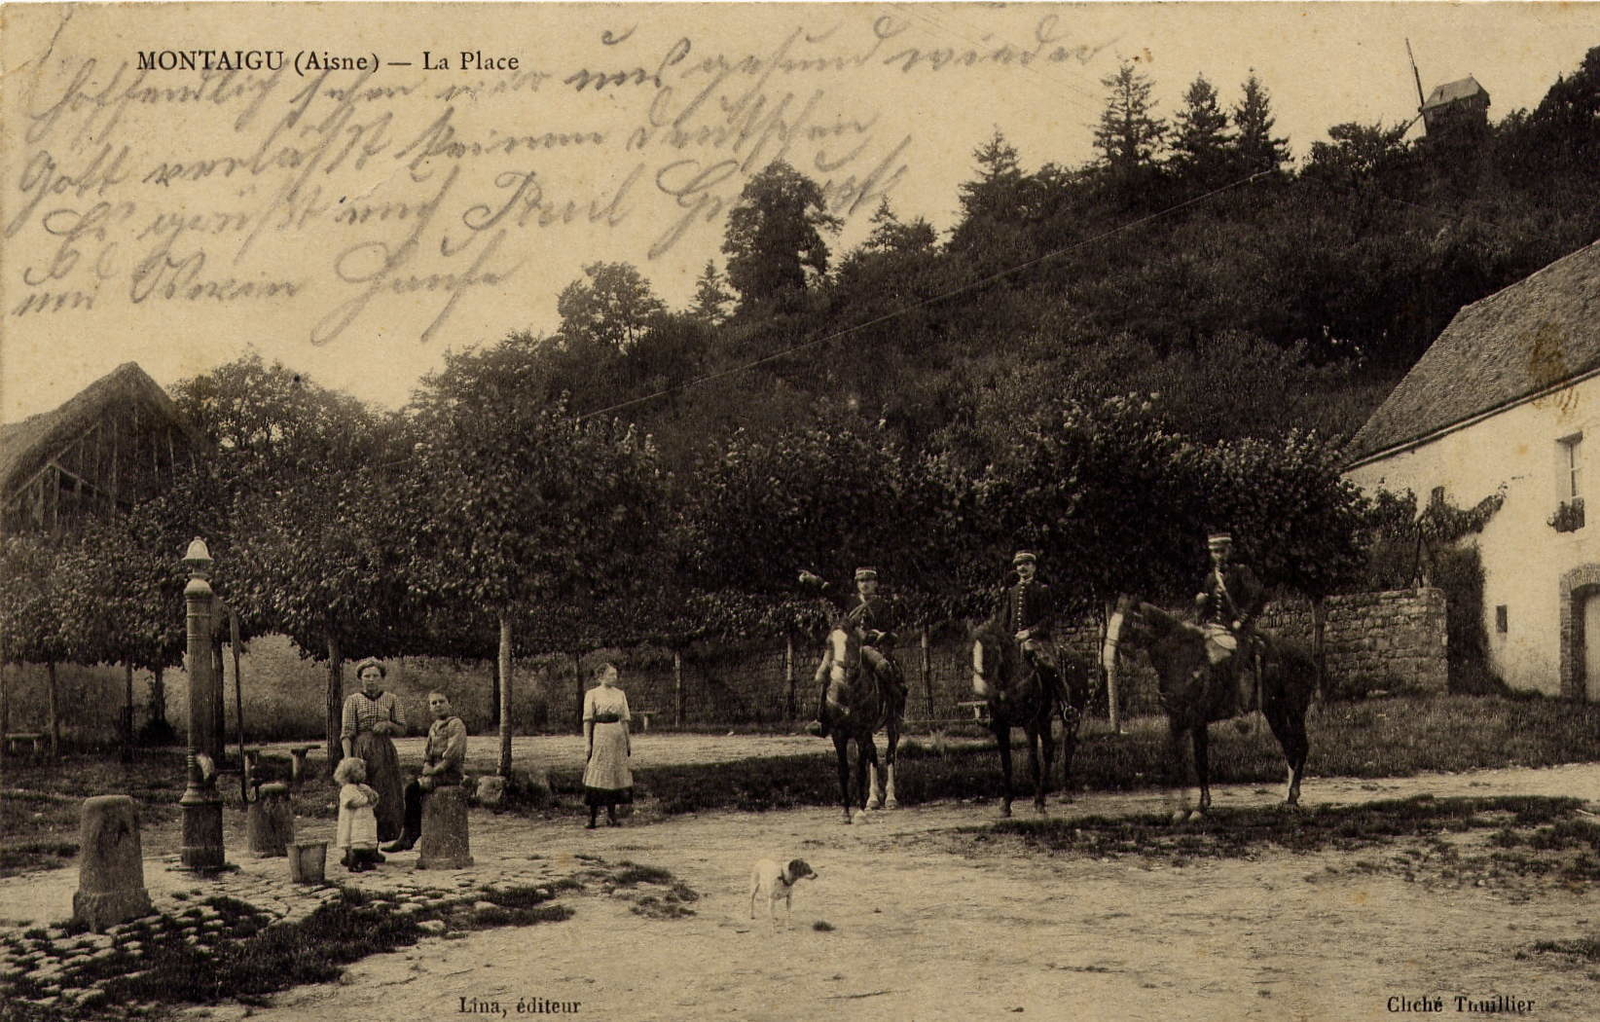 MONTAIGU (Aisne) — La Place
hoffendlich sehen wir uns gesund wieder
Gott verläßt keinen deutschen
Es grüßt euch Paul
und
Lina, éditeur
Cliché Thuillier